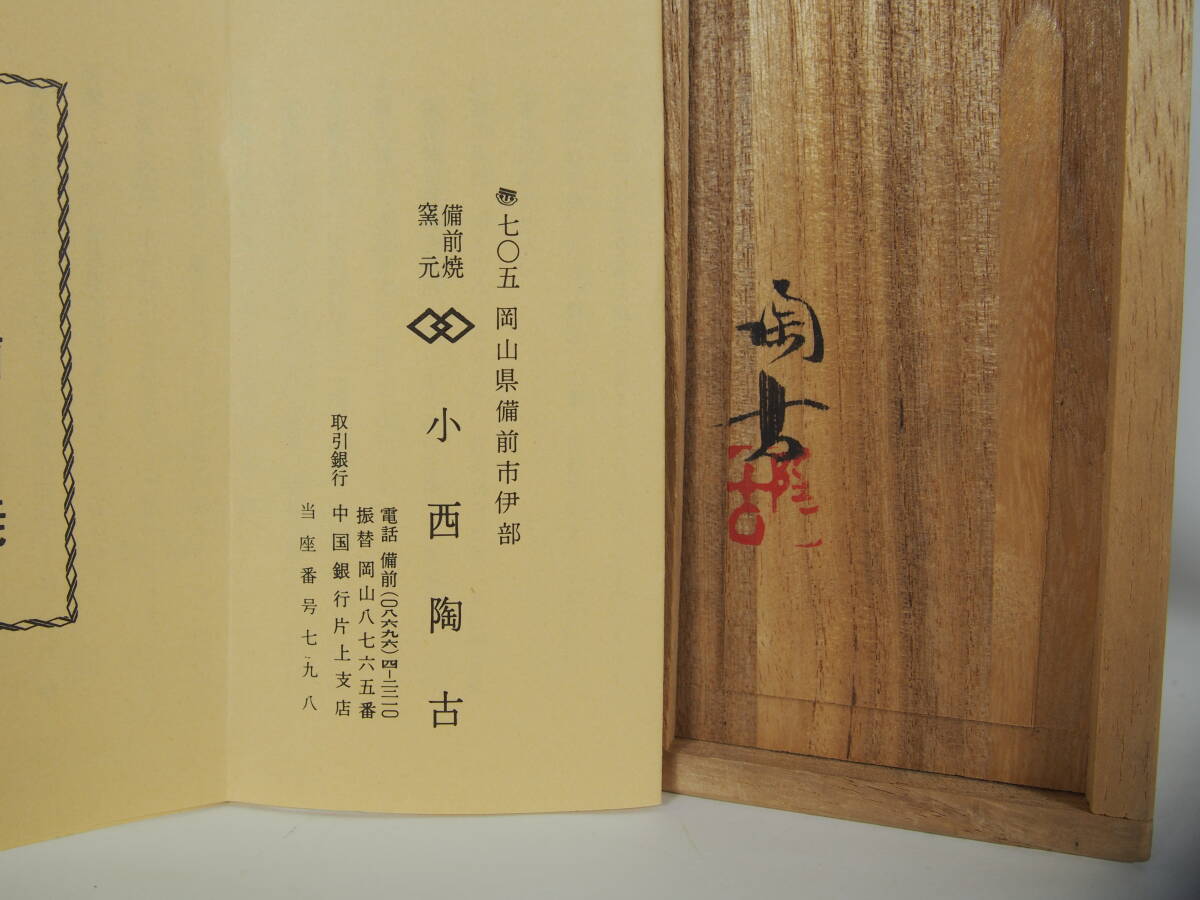 七〇五 岡山県備前市伊部
備前焼
窯元
小西陶古
電話 備前(〇八六九六)四-二二一〇
振替 岡山八七六五番
取引銀行 中国銀行片上支店
当座番号七九八
陶古